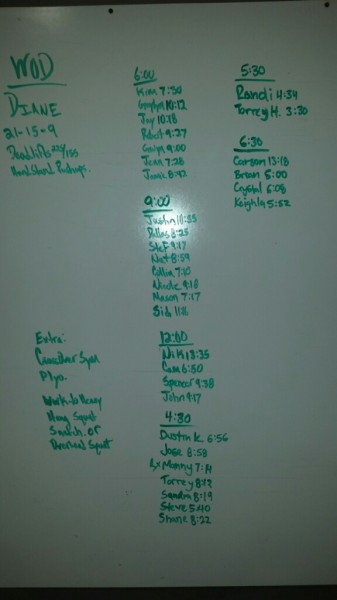 WOD
DIANE
21-15-9
Deadlifts 225/155
Handstand Pushups.
Extra:
Plyo.
Work to Heavy
Hang Squat
Snatch or
Overhead Squat
6:00
Kim 7:50
10:12
Joy 10:18
Robert 9:27
9:00
Jenn 7:28
Jamie 8:42
9:00
Justin 11:55
Dallas 8:25
Stef 9:17
Nat 8:59
Collin 7:10
Nicole 9:18
Mason 7:17
Sid
12:00
Nik 13:35
Cam 6:50
Spencer 9:38
John 9:17
4:30
Dustin K. 6:56
Jose 8:58
Rx Manny 7:14
Torrey 8:12
Sandra 8:19
Steve 5:40
Shane 8:22
5:30
Randi 4:34
Torrey H. 3:30
6:30
Carson 13:18
6:00
Crystal 6:08
Keighla 5:52